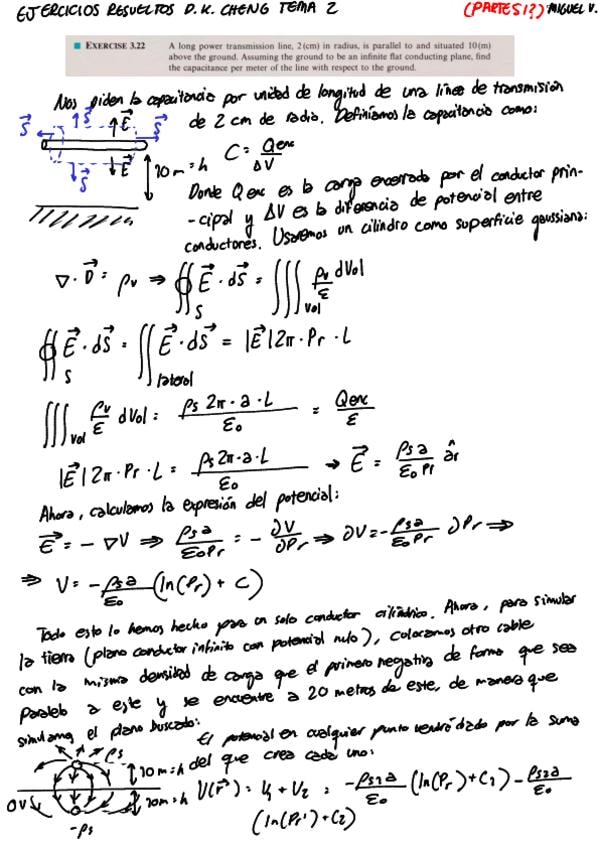 EJERCICIOS RESUELTOS D.K. CHENG TEMA 2 (PARTES1?) MIGUEL V.
EXERCISE 3.22 A long power transmission line, 2 (cm) in radius, is parallel to and situated 10 (m)
above the ground. Assuming the ground to be an infinite flat conducting plane, find
the capacitance per meter of the line with respect to the ground.
Nos piden la capacitancia por unidad de longitud de una línea de transmisión
de 2 cm de radio. Definiamos la capacitancia como:
C = Qenc/ΔV
10m = h
Donde Qenc es la carga encerrada por el conductor prin-
-cipal y ΔV es la diferencia de potencial entre
conductores. Usaremos un cilindro como superficie gaussiana:
∇·D⃗ = ρv ⇒ ∯_S E⃗·dS⃗ = ∭_Vol ρv/ε dVol
∯_S E⃗·dS⃗ = ∬_lateral E⃗·dS⃗ = |E⃗|2π·Pr·L
∭_Vol ρv/ε dVol = ρs 2π·a·L/ε₀ = Qenc/ε
|E⃗|2π·Pr·L = ρs 2π·a·L/ε₀ → E⃗ = ρs a/ε₀Pr âr
Ahora, calculamos la expresión del potencial:
E⃗ = -∇V ⇒ ρs a/ε₀Pr = -∂V/∂Pr ⇒ ∂V = -ρs a/ε₀Pr ∂Pr ⇒
⇒ V = -ρs a/ε₀ (ln(Pr) + C)
Todo esto lo hemos hecho para un solo conductor cilíndrico. Ahora, para simular
la tierra (plano conductor infinito con potencial nulo), colocamos otro cable
con la misma densidad de carga que el primero negativa de forma que sea
paralelo a este y se encuentre a 20 metros de este, de manera que
simulamos el plano buscado:
El potencial en cualquier punto vendrá dado por la suma
del que crea cada uno:
ρs
10m = h
0V
10m = h
-ρs
V(r⃗) = V₁ + V₂ = -ρs1 a/ε₀ (ln(Pr)+C₁) - ρs2 a/ε₀
(ln(Pr')+C₂)